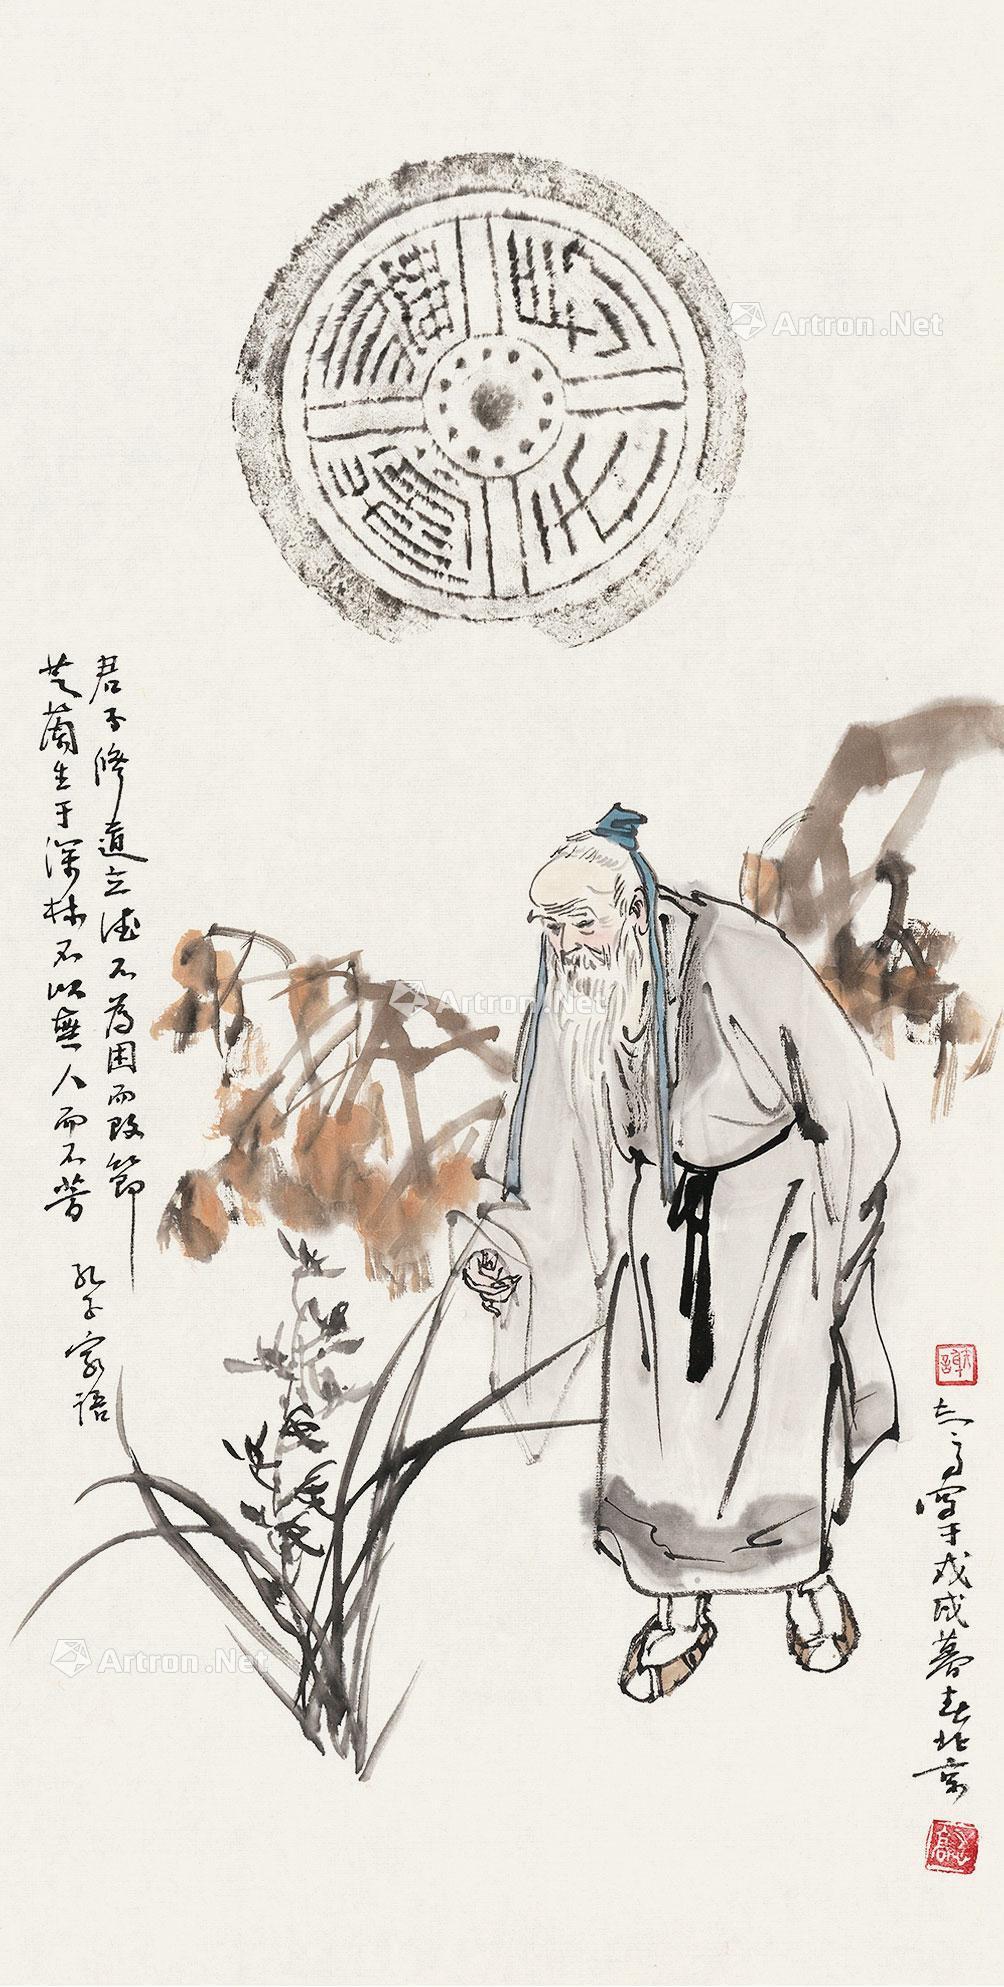 Artron.Net
君子修道立德不為困而改節
芝蘭生于深林不以無人而不芳
孔子家語
Artron.Net
謝
志高寫于戊戌暮春北京
Artron.Net